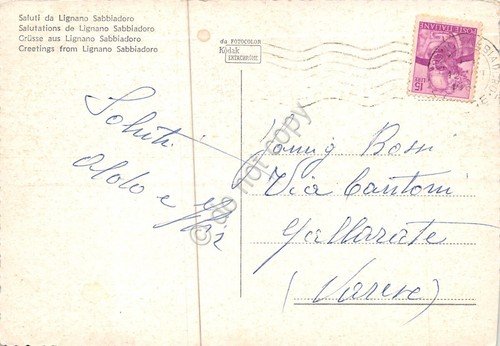 Saluti da Lignano Sabbiadoro
Salutations de Lignano Sabbiadoro
Grüsse aus Lignano Sabbiadoro
Greetings from Lignano Sabbiadoro
da FOTOCOLOR
Kodak
EKTACHROME
POSTE ITALIANE
L.15
Saluti
Aldo e
Famig Rossi
Via Cantoni
Gallarate
(Varese)
© do not copy